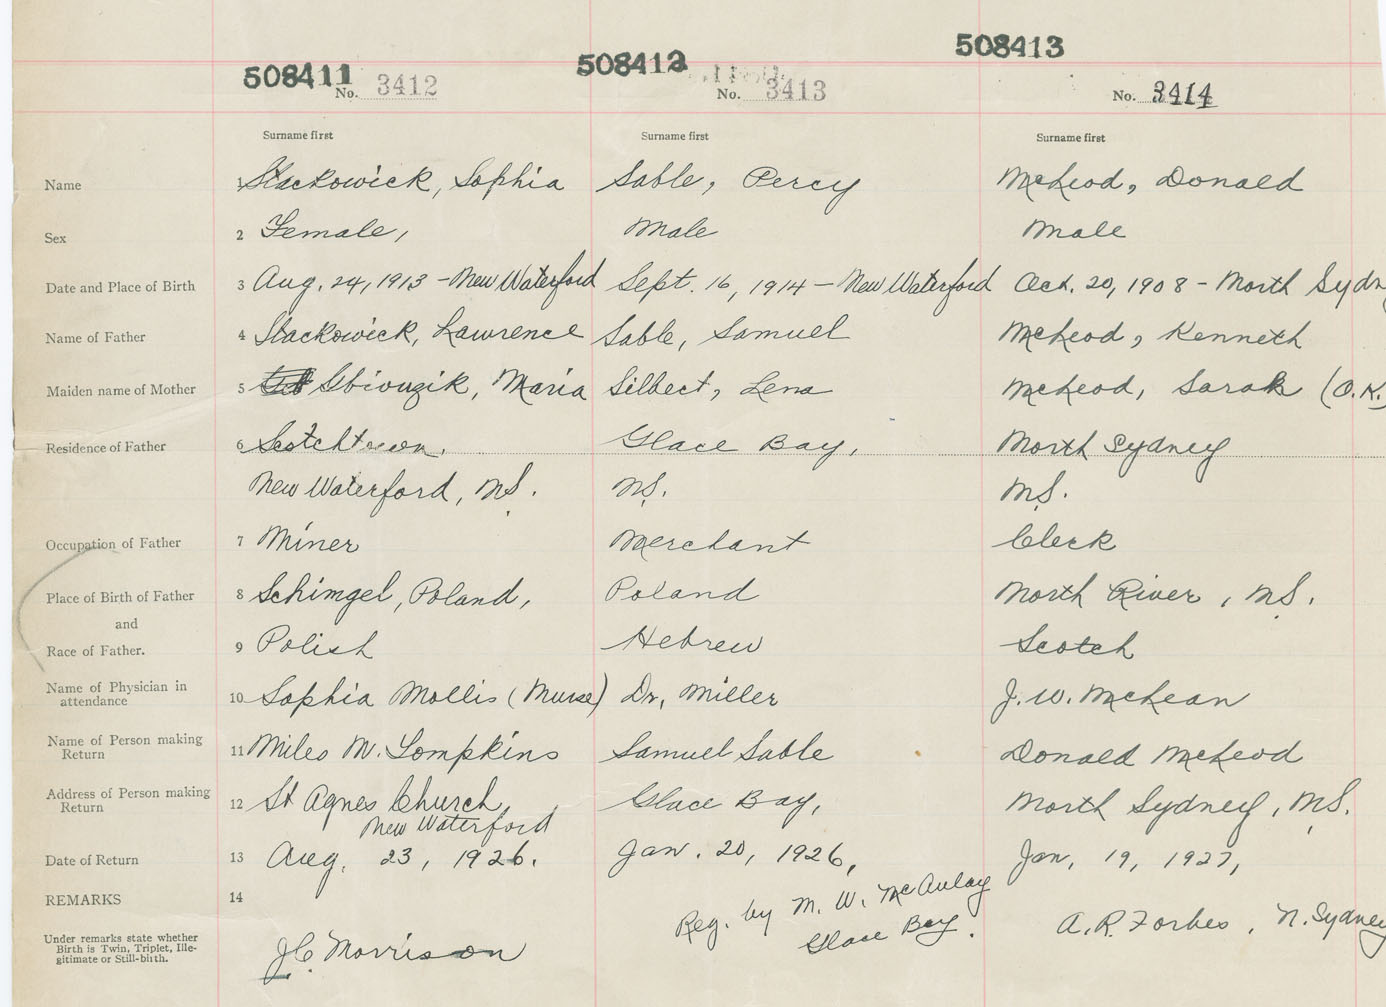 508411 508412 508413
No. 3412 No. 3413 No. 3414
Surname first Surname first Surname first
Name 1 Slackowick, Sophia Sable, Percy McLeod, Donald
Sex 2 Female, Male Male
Date and Place of Birth 3 Aug. 24, 1913 - New Waterford Sept. 16, 1914 - New Waterford Oct. 20, 1908 - North Sydn
Name of Father 4 Slackowick, Lawrence Sable, Samuel McLeod, Kenneth
Maiden name of Mother 5 Maria Silbert, Lena McLeod, Sarah (O.K.)
Residence of Father 6 Scotchtown. Glace Bay, North Sydney
New Waterford, N.S. N.S. N.S.
Occupation of Father 7 Miner Merchant Clerk
Place of Birth of Father 8 Schimgel, Poland, Poland North River, N.S.
and
Race of Father. 9 Polish Hebrew Scotch
Name of Physician in
attendance 10 Sophia Mollis (Nurse) Dr. Miller J. W. McLean
Name of Person making
Return 11 Miles N. Tompkins Samuel Sable Donald McLeod
Address of Person making
Return 12 St Agnes Church, Glace Bay, North Sydney, N.S.
New Waterford
Date of Return 13 Aug. 23, 1926. Jan. 20, 1926, Jan. 19, 1927,
REMARKS 14 Reg. by M. W. McAulay
Glace Bay. A. R. Forbes, N. Sydney
Under remarks state whether
Birth is Twin, Triplet, Ille-
gitimate or Still-birth. J C. Morrison